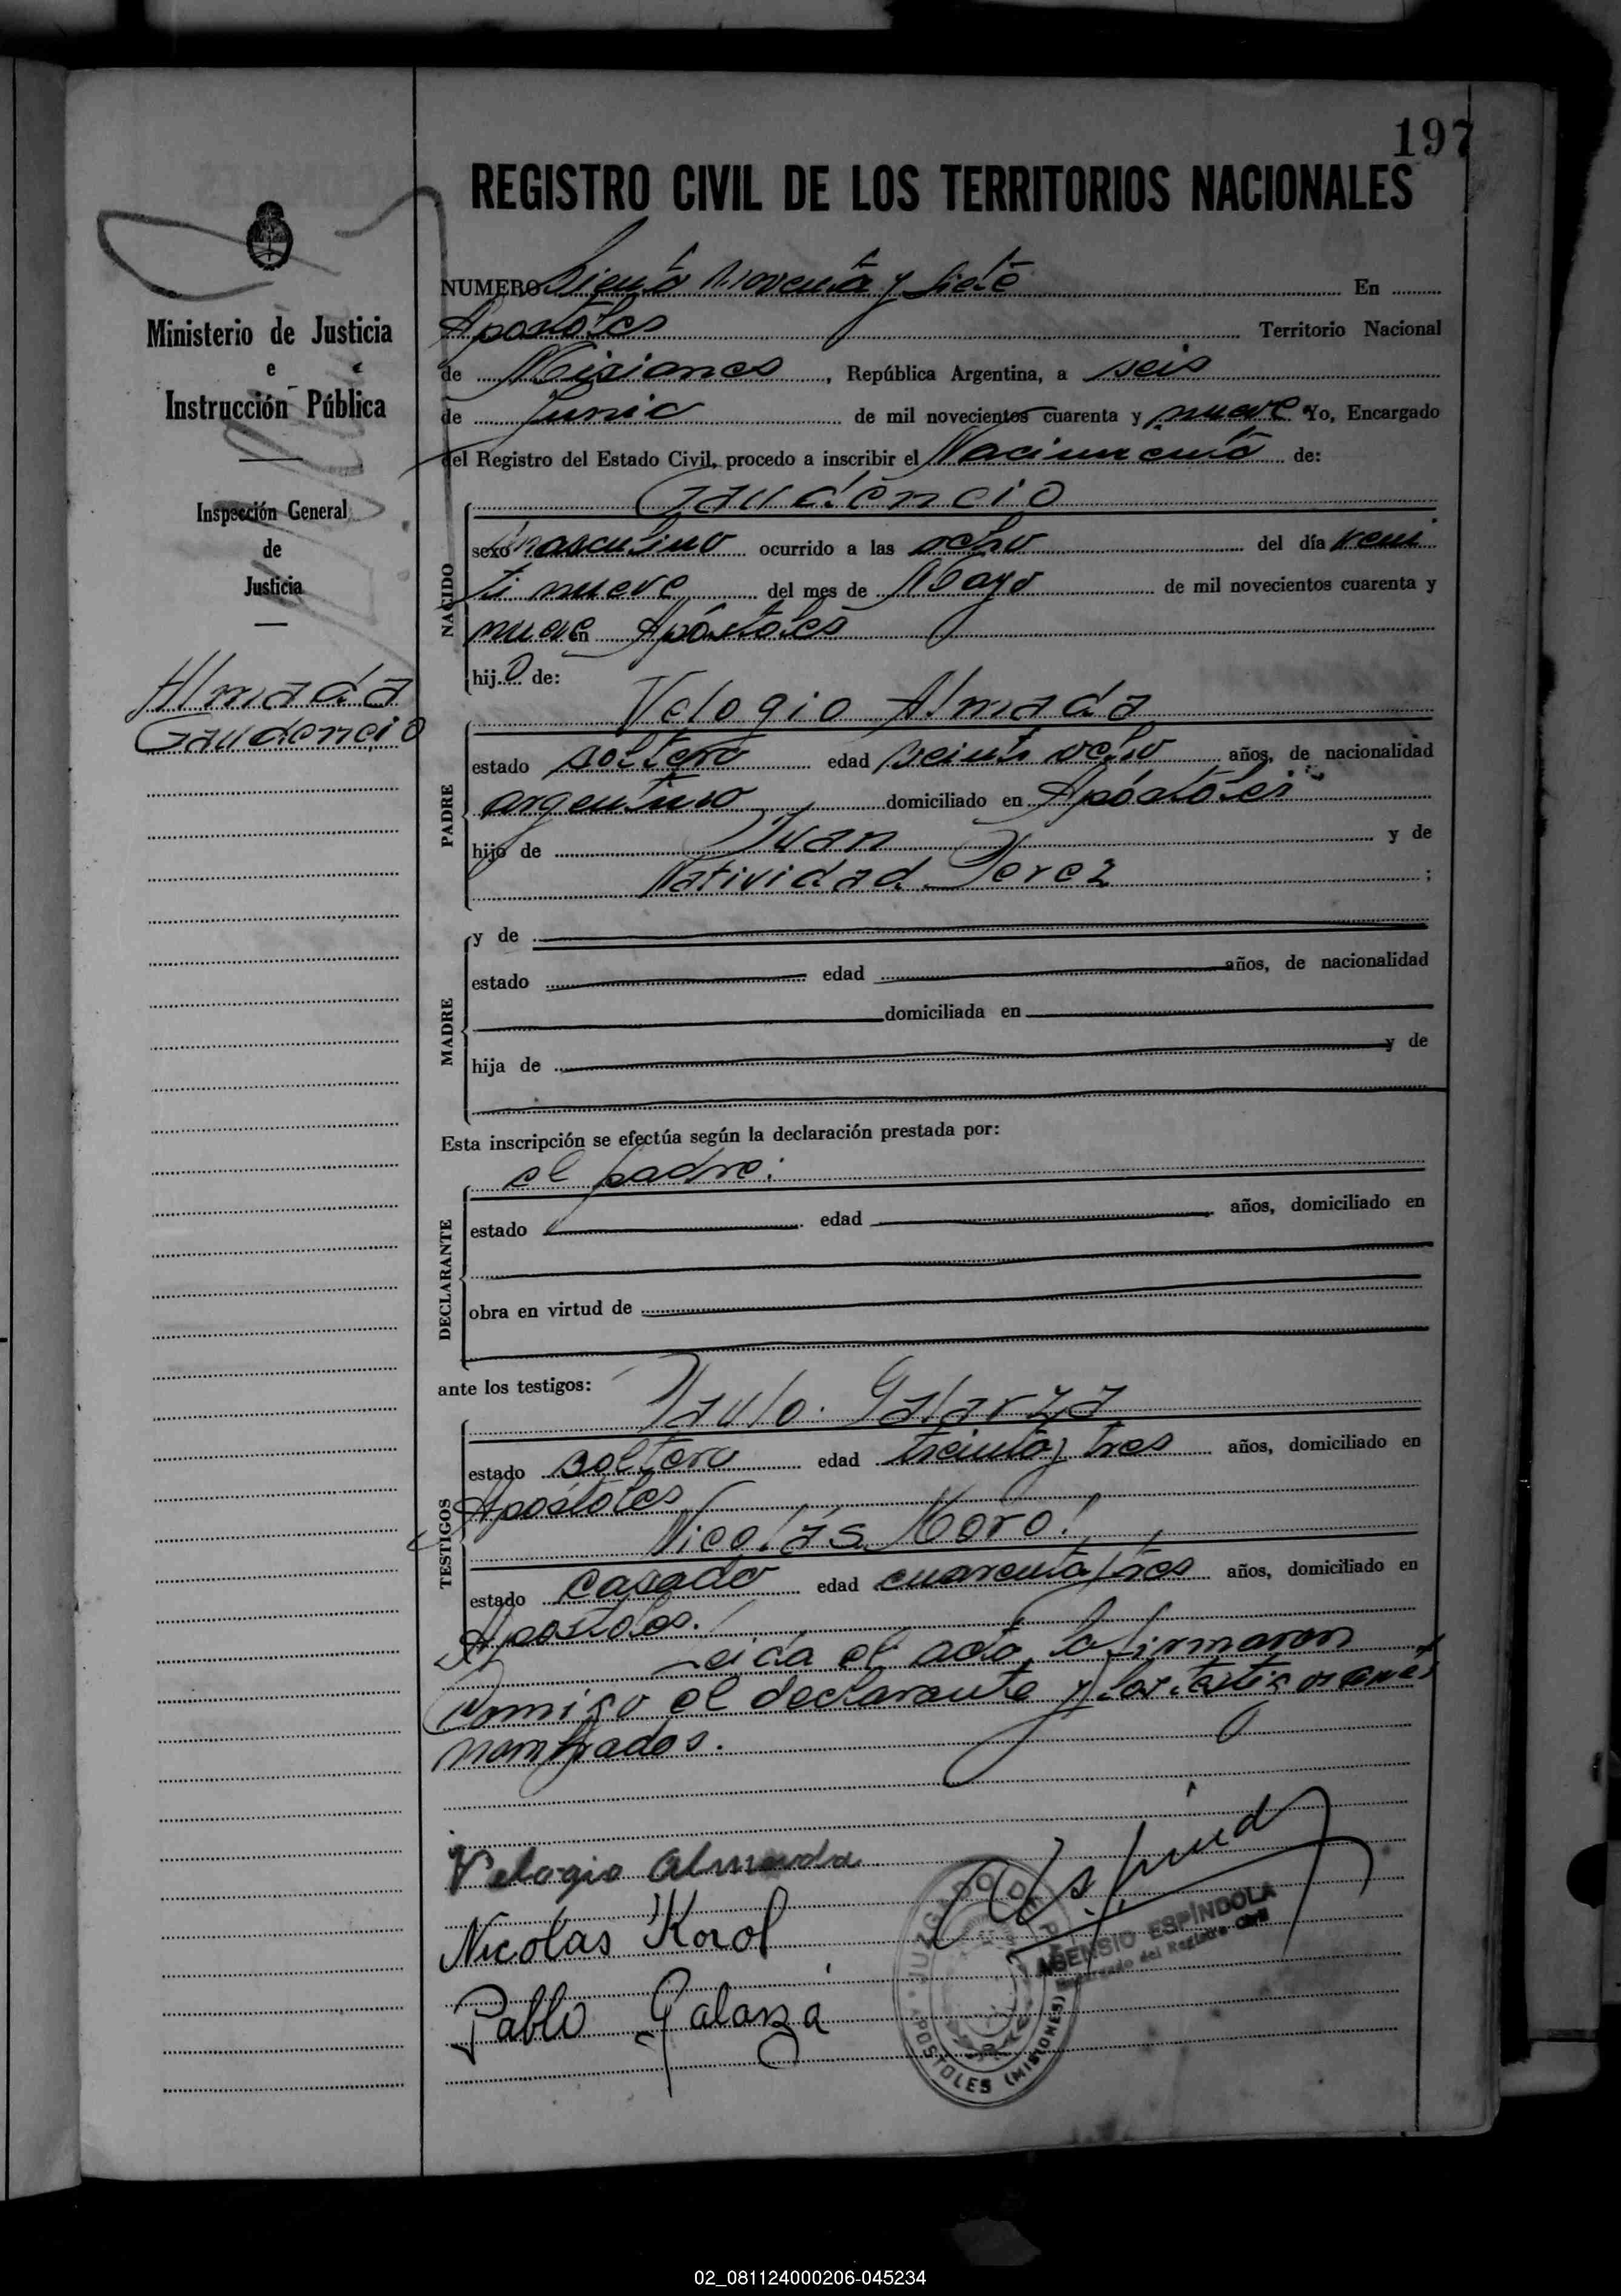 197
REGISTRO CIVIL DE LOS TERRITORIOS NACIONALES
Ministerio de Justicia
e
Instrucción Pública
Inspección General
de
Justicia
Almada
Gaudencio
NUMERO Siento Noventa y Siete En
Apostoles Territorio Nacional
de Misiones, República Argentina, a seis
de Junio de mil novecientos cuarenta y nueve Yo, Encargado
del Registro del Estado Civil, procedo a inscribir el Nacimiento de:
Gaudencio
NACIDO
sexo masculino ocurrido a las ocho del día veni
ti nueve del mes de Mayo de mil novecientos cuarenta y
nueve en Apóstoles
hijo de:
Velogio Almada
PADRE
estado soltero edad veinti ocho años, de nacionalidad
argentino domiciliado en Apóstoles
hijo de Juan y de
Natividad Perez ;
MADRE
y de
estado edad años, de nacionalidad
domiciliada en
hija de y de
Esta inscripción se efectúa según la declaración prestada por:
el padre.
DECLARANTE
estado edad años, domiciliado en
obra en virtud de
ante los testigos:
Paulo Galarza
TESTIGOS
estado soltero edad treinta y tres años, domiciliado en
Apóstoles
Nicolás Koro!
estado casado edad cuarenta y tres años, domiciliado en
Apostoles.
Leida el acta, la firmaron
comigo el declarante y los testigos antes
nombrados.
Velogio Almada
Nicolas Korol
Pablo Galarza
JUZGADO DE P
APOSTOLES (MISIONES)
ASENSIO ESPÍNDOLA
Encargado del Registro Civil
02_081124000206-045234